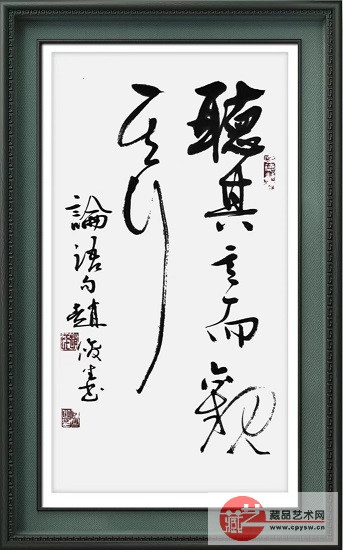 聽其言而觀
其行
論語句趙俊生書
藏艺
藏品艺术网
www.cpysw.cn